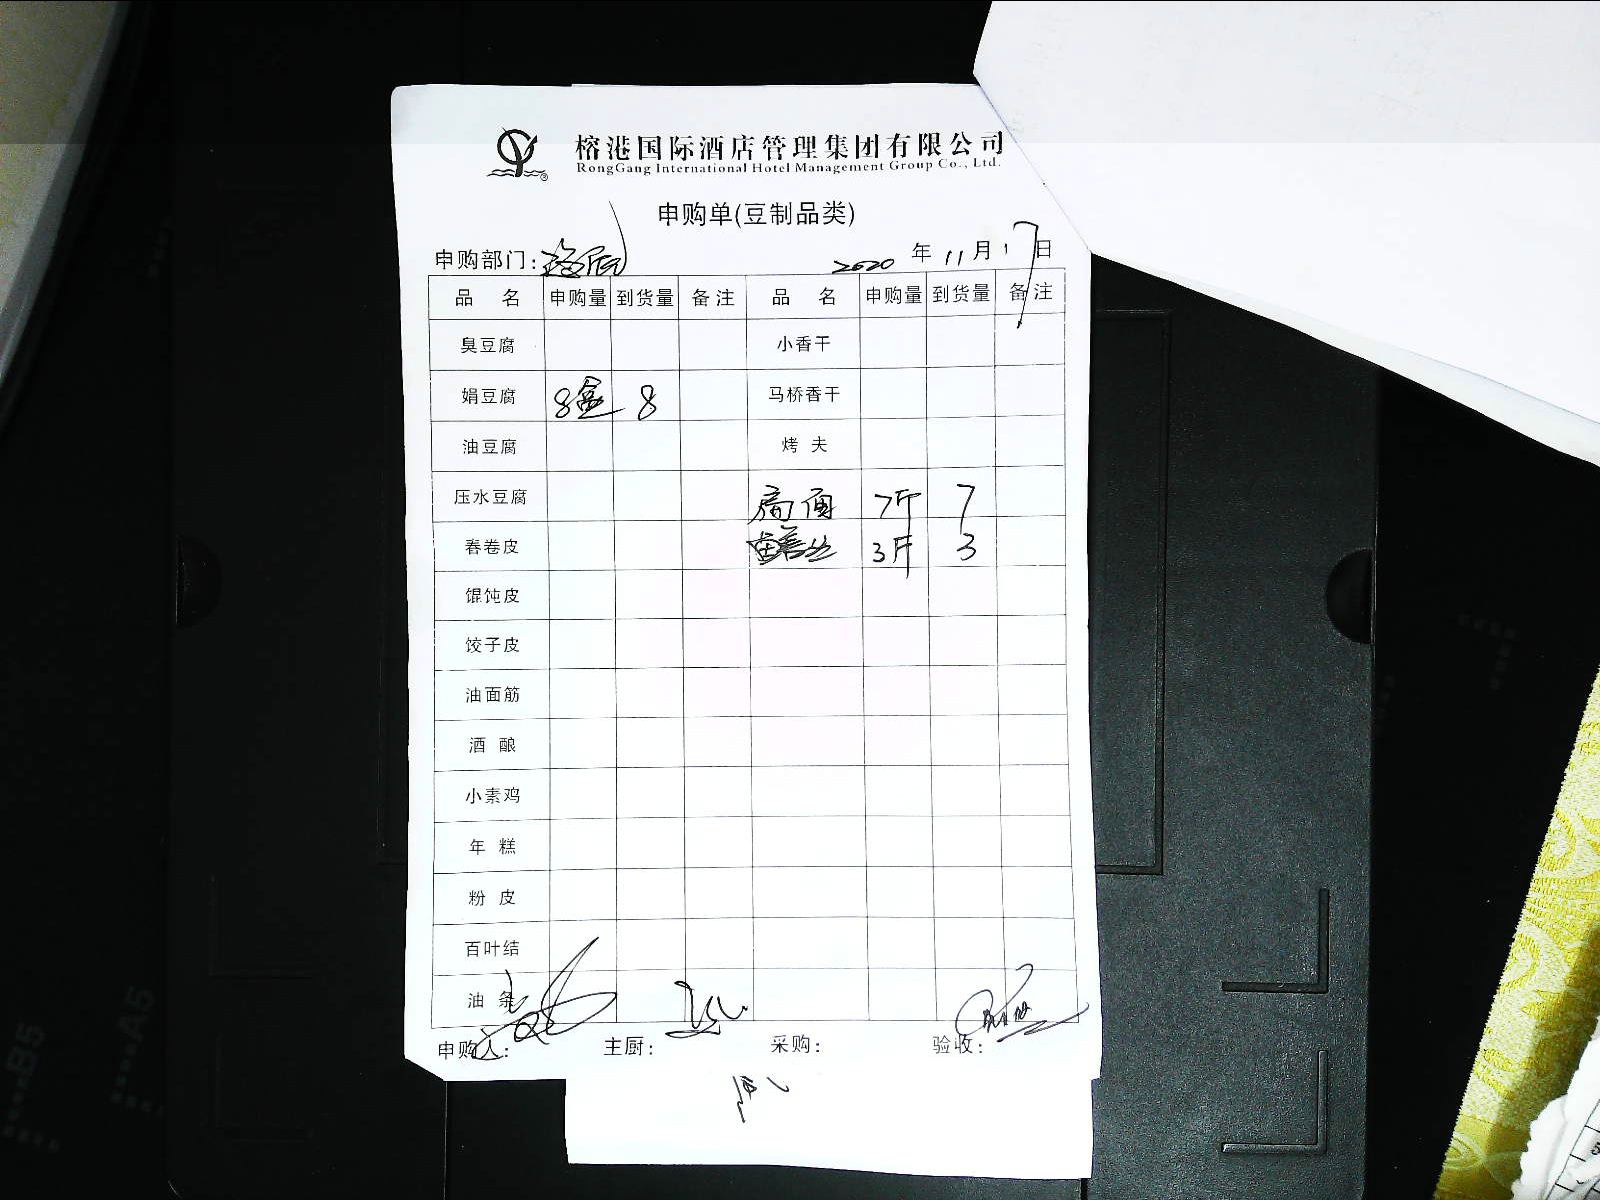 榕港国际酒店管理集团有限公司
RongGang International Hotel Management Group Co., Ltd.
申购单(豆制品类)
申购部门: 2020 年 11 月 17 日
品 名 申购量 到货量 备注 品 名 申购量 到货量 备注
臭豆腐 小香干
娟豆腐 8盒 8 马桥香干
油豆腐 烤 夫
压水豆腐 7斤 7
春卷皮 3斤 3
馄饨皮
饺子皮
油面筋
酒 酿
小素鸡
年 糕
粉 皮
百叶结
油 条
申购人: 主厨: 采购: 验收:
B5
A5